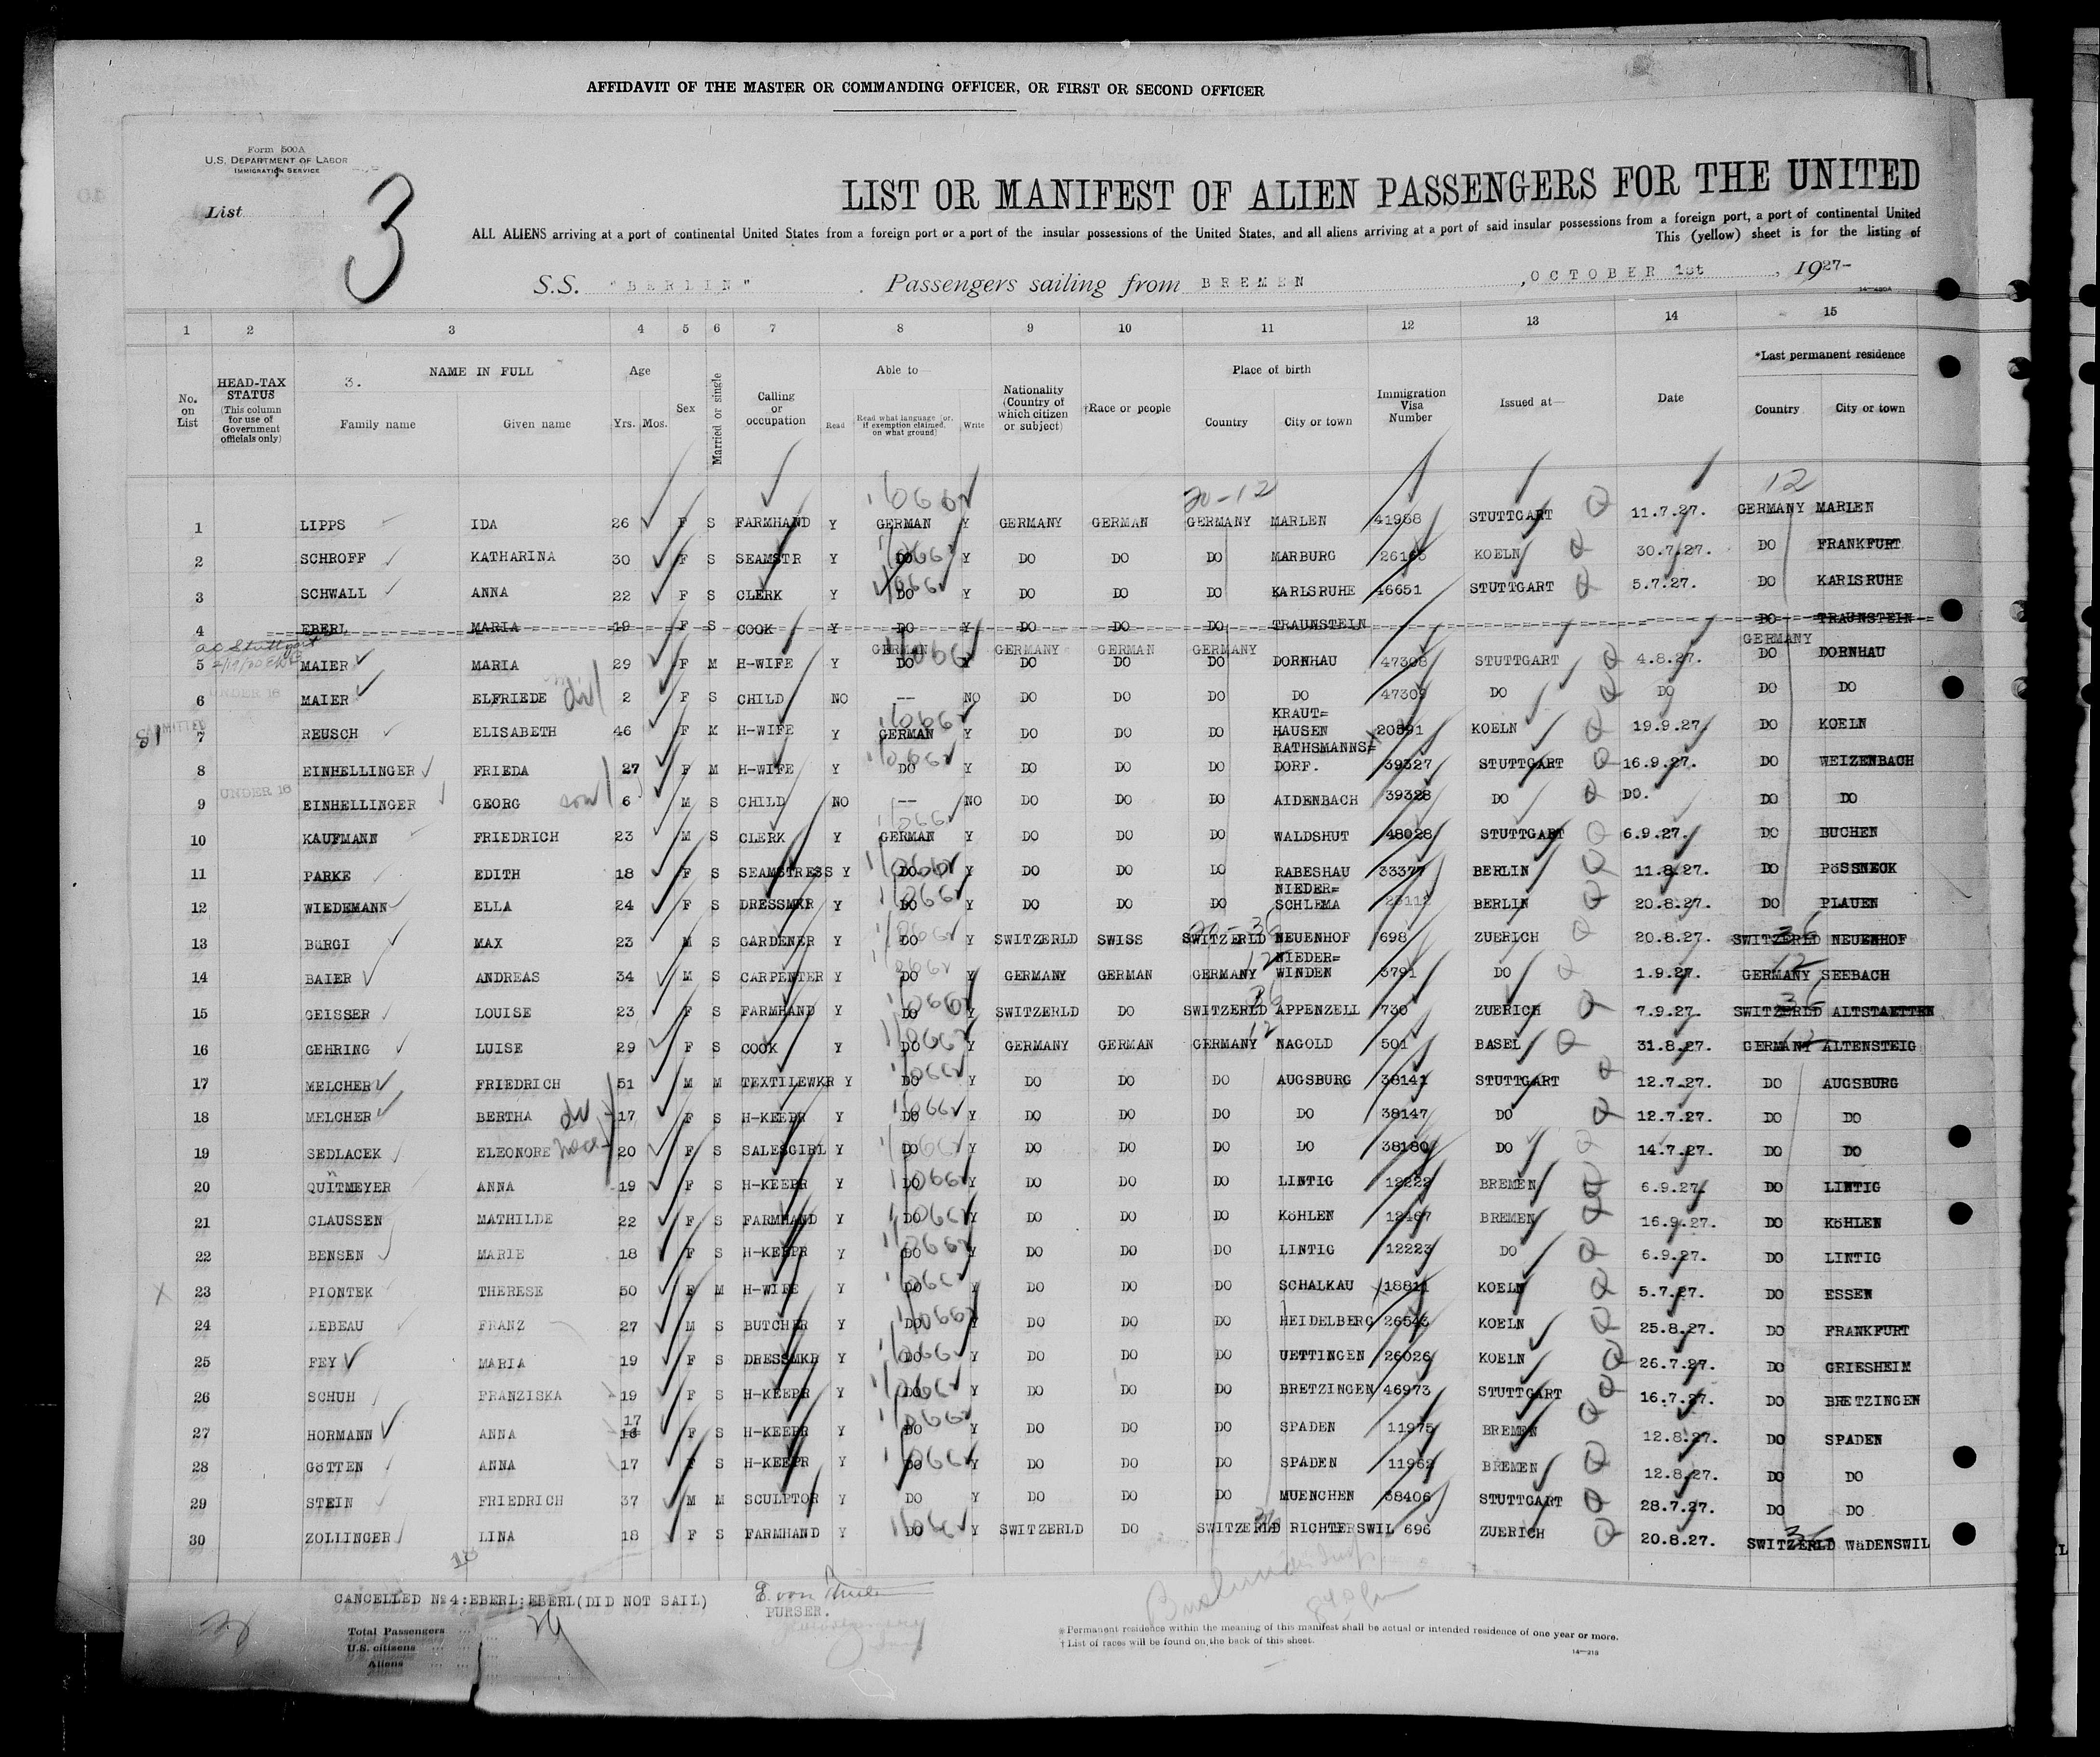 AFFIDAVIT OF THE MASTER OR COMMANDING OFFICER, OR FIRST OR SECOND OFFICER
Form 500A
U.S. DEPARTMENT OF LABOR
IMMIGRATION SERVICE
List
3
LIST OR MANIFEST OF ALIEN PASSENGERS FOR THE UNITED
ALL ALIENS arriving at a port of continental United States from a foreign port or a port of the insular possessions of the United States, and all aliens arriving at a port of said insular possessions from a foreign port, a port of continental United
This (yellow) sheet is for the listing of
S.S. "BERLIN" Passengers sailing from BREMEN, OCTOBER 1st, 1927-
1 2 3 4 5 6 7 8 9 10 11 12 13 14 15
No. on List
HEAD-TAX STATUS (This column for use of Government officials only)
3. NAME IN FULL
Family name Given name
Age Yrs. Mos.
Sex
Married or single
Calling or occupation
Able to
Read Read what language (or, if exemption claimed, on what ground) Write
Nationality (Country of which citizen or subject)
†Race or people
Place of birth
Country City or town
Immigration Visa Number
Issued at—
Date
*Last permanent residence
Country City or town
20-12 12
1 LIPPS IDA 26 F S FARMHAND Y GERMAN Y GERMANY GERMAN GERMANY MARLEN 41958 STUTTGART 11.7.27. GERMANY MARLEN
2 SCHROFF KATHARINA 30 F S SEAMSTR Y DO Y DO DO DO MARBURG KOELN 30.7.27. DO FRANKFURT
3 SCHWALL ANNA 22 F S CLERK Y DO Y DO DO DO KARLSRUHE 46651 STUTTGART 5.7.27. DO KARLSRUHE
4 EBERL MARIA 19 F S COOK Y DO Y DO DO DO TRAUNSTEIN DO TRAUNSTEIN
GERMAN GERMANY GERMAN GERMANY GERMANY
5 MAIER MARIA 29 F M H-WIFE Y DO Y DO DO DO DORNHAU 47308 STUTTGART 4.8.27. DO DORNHAU
UNDER 16
6 MAIER ELFRIEDE 2 F S CHILD NO -- NO DO DO DO DO 47309 DO DO DO DO
ADMITTED
7 REUSCH ELISABETH 46 F M H-WIFE Y GERMAN Y DO DO DO KRAUT=HAUSEN 20391 KOELN 19.9.27. DO KOELN
8 EINHELLINGER FRIEDA 27 F M H-WIFE Y DO Y DO DO DO RATHSMANNS=DORF. 39327 STUTTGART 16.9.27. DO WEIZENBACH
UNDER 16
9 EINHELLINGER GEORG son 6 M S CHILD NO -- NO DO DO DO AIDENBACH 39328 DO DO. DO DO
10 KAUFMANN FRIEDRICH 23 M S CLERK Y GERMAN Y DO DO DO WALDSHUT 48028 STUTTGART 6.9.27. DO BUCHEN
11 PARKE EDITH 18 F S SEAMSTRESS Y DO Y DO DO DO RABESHAU 33377 BERLIN 11.8.27. DO PÖSSNECK
12 WIEDEMANN ELLA 24 F S DRESSMKR Y DO Y DO DO DO NIEDER=SCHLEMA BERLIN 20.8.27. DO PLAUEN
13 BÜRGI MAX 23 M S GARDENER Y DO Y SWITZERLD SWISS SWITZERLD NEUENHOF 698 ZUERICH 20.8.27. SWITZERLD NEUENHOF
14 BAIER ANDREAS 34 M S CARPENTER Y DO Y GERMANY GERMAN GERMANY NIEDER=WINDEN 3791 DO 1.9.27. GERMANY SEEBACH
15 GEISSER LOUISE 23 F S FARMHAND Y DO Y SWITZERLD DO SWITZERLD APPENZELL 730 ZUERICH 7.9.27. SWITZERLD ALTSTAETTEN
16 GEHRING LUISE 29 F S COOK Y DO Y GERMANY GERMAN GERMANY NAGOLD 501 BASEL 31.8.27. GERMANY ALTENSTEIG
17 MELCHER FRIEDRICH 51 M M TEXTILEWKR Y DO Y DO DO DO AUGSBURG 38141 STUTTGART 12.7.27. DO AUGSBURG
18 MELCHER BERTHA 17 F S H-KEEPR Y DO Y DO DO DO DO 38147 DO 12.7.27. DO DO
19 SEDLACEK ELEONORE niece 20 F S SALESGIRL Y DO Y DO DO DO DO 38180 DO 14.7.27. DO DO
20 QUITMEYER ANNA 19 F S H-KEEPR Y DO Y DO DO DO LINTIG 12222 BREMEN 6.9.27. DO LINTIG
21 CLAUSSEN MATHILDE 22 F S FARMHAND Y DO Y DO DO DO KÖHLEN 12467 BREMEN 16.9.27. DO KÖHLEN
22 BENSEN MARIE 18 F S H-KEEPR Y DO Y DO DO DO LINTIG 12223 DO 6.9.27. DO LINTIG
23 PIONTEK THERESE 50 F M H-WIFE Y DO Y DO DO DO SCHALKAU 18811 KOELN 5.7.27. DO ESSEN
24 LEBEAU FRANZ 27 M S BUTCHER Y DO Y DO DO DO HEIDELBERG 26543 KOELN 25.8.27. DO FRANKFURT
25 FEY MARIA 19 F S DRESSMKR Y DO Y DO DO DO UETTINGEN 26026 KOELN 26.7.27. DO GRIESHEIM
26 SCHUH FRANZISKA 19 F S H-KEEPR Y DO Y DO DO DO BRETZINGEN 46973 STUTTGART 16.7.27. DO BRETZINGEN
27 HORMANN ANNA 17 F S H-KEEPR Y DO Y DO DO DO SPADEN 11975 BREMEN 12.8.27. DO SPADEN
28 GÖTTEN ANNA 17 F S H-KEEPR Y DO Y DO DO DO SPADEN 11962 BREMEN 12.8.27. DO DO
29 STEIN FRIEDRICH 37 M M SCULPTOR Y DO Y DO DO DO MUENCHEN 38406 STUTTGART 28.7.27. DO DO
30 ZOLLINGER LINA 18 F S FARMHAND Y DO Y SWITZERLD DO SWITZERLD RICHTERSWIL 696 ZUERICH 20.8.27. SWITZERLD WäDENSWIL
CANCELLED №4:EBERL:EBERL(DID NOT SAIL)
PURSER.
Total Passengers
U.S. citizens
Aliens
*Permanent residence within the meaning of this manifest shall be actual or intended residence of one year or more.
†List of races will be found on the back of this sheet.